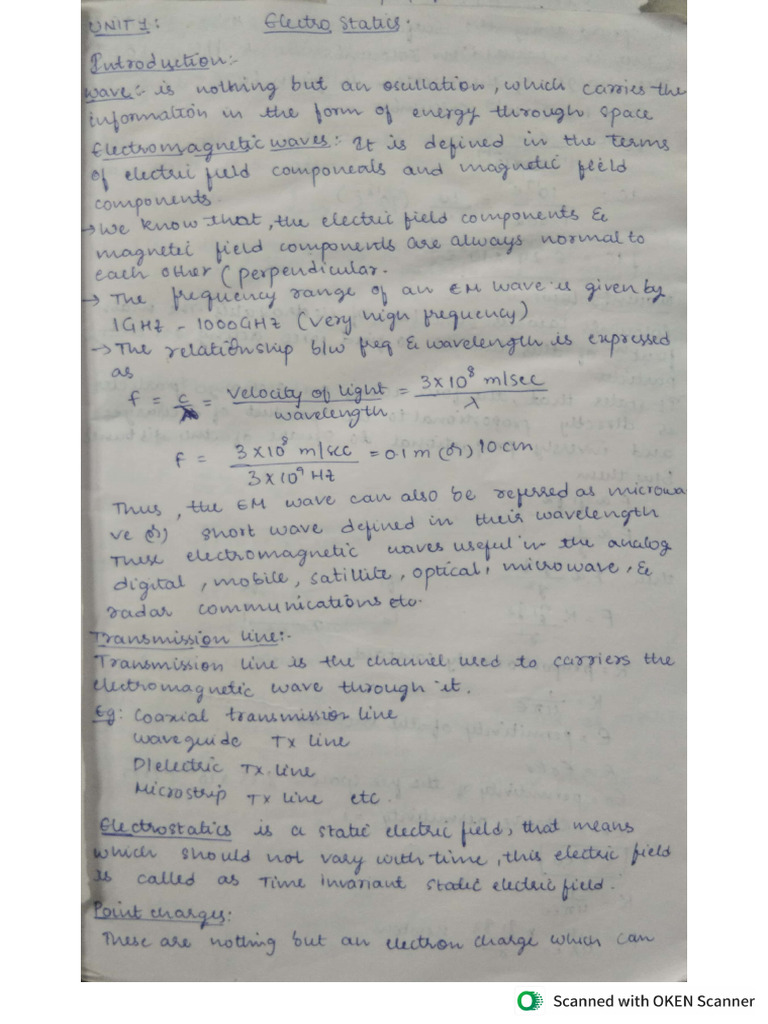 UNIT 1: Electro Statics:
Introduction:-
Wave:- is nothing but an oscillation, which carries the
information in the form of energy through space
Electromagnetic waves:- It is defined in the terms
of electric field componeals and magnetic field
components.
→ We know that, the electric field components &
magnetic field components are always normal to
each other (perpendicular.
→ The frequency range of an EM wave is given by
1GHZ - 1000GHZ (very high frequency)
→ The relationship b/w freq & wavelength is expressed
as
f = c/λ = Velocity of light / wavelength = 3×10⁸ m/sec / λ
f = 3×10⁸ m/sec / 3×10⁹ HZ = 0.1m (or) 10cm
Thus, the EM wave can also be referred as microwa
ve (or) short wave defined in their wavelength
These electromagnetic waves useful in the analog
digital, mobile, satillite, optical, microwave, &
radar communications etc.
Transmission line:-
Transmission line is the channel used to carriers the
electromagnetic wave through it.
Eg: Coaxial transmission line
Waveguide Tx line
DIelectric Tx line
Microstrip Tx line etc.
Electrostatics is a static electric field, that means
which should not vary with time, this electric field
is called as Time invariant static electric field.
Point charges:
These are nothing but an electron charge which can
Scanned with OKEN Scanner